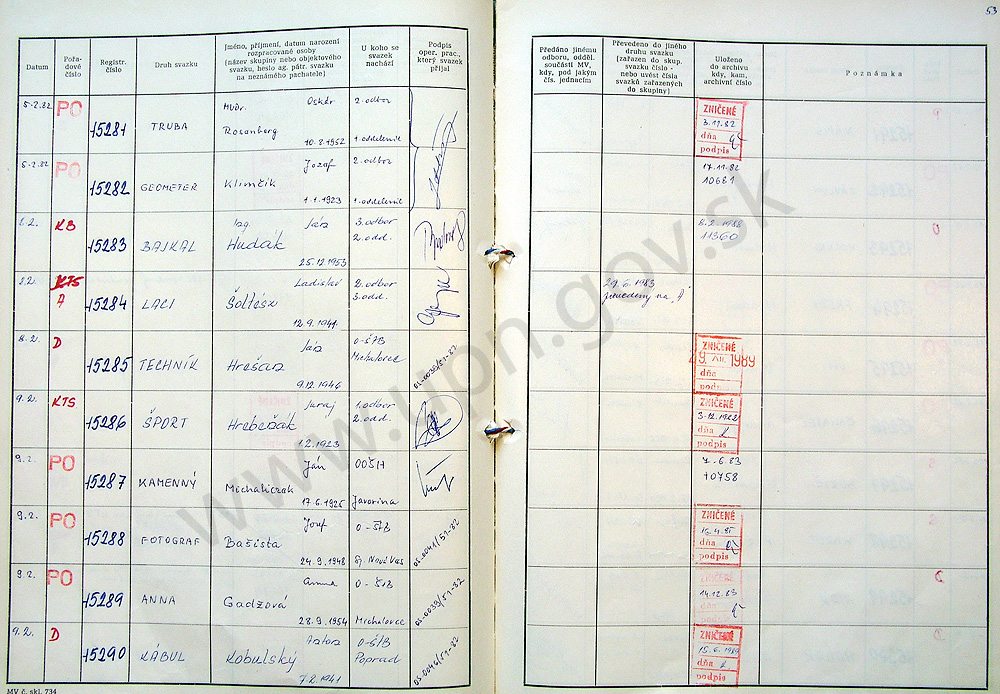 53
Datum
Pořadové číslo
Registr. číslo
Druh svazku
Jméno, příjmení, datum narození
rozpracované osoby
(název skupiny nebo objektového
svazku, heslo ag. pátr. svazku
na neznámého pachatele)
U koho se
svazek
nachází
Podpis
oper. prac.,
který svazek
přijal
Předáno jinému
odboru, odděl.
součásti MV,
kdy, pod jakým
čís. jednacím
Převedeno do jiného
druhu svazku
(zařazen do skup.
svazku číslo -
nebo uvést čísla
svazků zařazených
do skupiny)
Uloženo
do archivu
kdy, kam,
archivní číslo
Poznámka
5.2.82 PO 15281 TRUBA MUDr. Oskár 2. odbor
Rosenberg
10.8.1952 1. oddelenie
ZNIČENÉ
3.11.82
dňa
podpis
5.2.82 PO 15282 GEOMETER Jozef 2. odbor
Klimčík
1.1.1923 1. oddelenie
17.11.82
10681
8.2. KB 15283 BAJKAL Ing. Ján 3. odbor
Hudák 2. odd.
25.12.1953
8.2.1988
11360
8.2. KTS A 15284 LACI Ladislav 2. odbor
Šoltész 3. odd.
12.9.1941
29.6.1983
"A"
8.2. D 15285 TECHNÍK Ján O-ŠTB
Hrešan Michalovce
9.12.1946 OS-0039/51-82
ZNIČENÉ
29. XII. 1989
dňa
podpis
9.2. KTS 15286 ŠPORT Juraj 1. odbor
Hrebeňák 2. odd.
1.2.1923
ZNIČENÉ
dňa
podpis
9.2. PO 15287 KAMENNÝ Ján OOŠH
Mechaliczek
17.6.1926 Javorina
7.6.83
10758
9.2. PO 15288 FOTOGRAF Jozef O-ŠTB
Bašista
24.9.1948 Sp. Nová Ves OS-0041/51-82
ZNIČENÉ
dňa
podpis
9.2. PO 15289 ANNA Anna O-ŠTB
Gadzová
28.9.1954 Michalovce OS-0039/51-82
ZNIČENÉ
14.12.83
dňa
podpis
9.2. D 15290 KÁBUL Anton O-ŠTB
Kobulský Poprad
7.2.1941 OS-0046/51-82
ZNIČENÉ
15.6.1989
dňa
podpis
MV č. skl. 734
www.upn.gov.sk